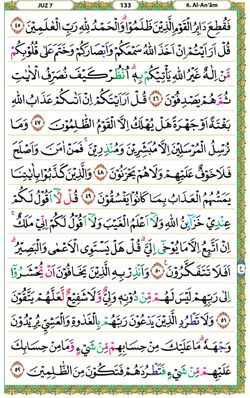 JUZ 7 133 6. Al-An'ām
فَقُطِعَ دَابِرُ الْقَوْمِ الَّذِيْنَ ظَلَمُوْا ۗ وَالْحَمْدُ لِلّٰهِ رَبِّ الْعٰلَمِيْنَ ٤٥
قُلْ اَرَءَيْتُمْ اِنْ اَخَذَ اللّٰهُ سَمْعَكُمْ وَاَبْصَارَكُمْ وَخَتَمَ عَلٰى قُلُوْبِكُمْ
مَّنْ اِلٰهٌ غَيْرُ اللّٰهِ يَأْتِيْكُمْ بِهٖ ۗ اُنْظُرْ كَيْفَ نُصَرِّفُ الْاٰيٰتِ
ثُمَّ هُمْ يَصْدِفُوْنَ ٤٦ قُلْ اَرَءَيْتَكُمْ اِنْ اَتٰىكُمْ عَذَابُ اللّٰهِ
بَغْتَةً اَوْ جَهْرَةً هَلْ يُهْلَكُ اِلَّا الْقَوْمُ الظّٰلِمُوْنَ ٤٧ وَمَا
نُرْسِلُ الْمُرْسَلِيْنَ اِلَّا مُبَشِّرِيْنَ وَمُنْذِرِيْنَ ۚ فَمَنْ اٰمَنَ وَاَصْلَحَ
فَلَا خَوْفٌ عَلَيْهِمْ وَلَا هُمْ يَحْزَنُوْنَ ٤٨ وَالَّذِيْنَ كَذَّبُوْا بِاٰيٰتِنَا
يَمَسُّهُمُ الْعَذَابُ بِمَا كَانُوْا يَفْسُقُوْنَ ٤٩ قُلْ لَّآ اَقُوْلُ لَكُمْ
عِنْدِيْ خَزَاۤىِٕنُ اللّٰهِ وَلَآ اَعْلَمُ الْغَيْبَ وَلَآ اَقُوْلُ لَكُمْ اِنِّيْ مَلَكٌ ۚ
اِنْ اَتَّبِعُ اِلَّا مَا يُوْحٰٓى اِلَيَّ ۗ قُلْ هَلْ يَسْتَوِى الْاَعْمٰى وَالْبَصِيْرُ ۗ
اَفَلَا تَتَفَكَّرُوْنَ ٥٠ وَاَنْذِرْ بِهِ الَّذِيْنَ يَخَافُوْنَ اَنْ يُّحْشَرُوْٓا
اِلٰى رَبِّهِمْ لَيْسَ لَهُمْ مِّنْ دُوْنِهٖ وَلِيٌّ وَّلَا شَفِيْعٌ لَّعَلَّهُمْ يَتَّقُوْنَ
٥١ وَلَا تَطْرُدِ الَّذِيْنَ يَدْعُوْنَ رَبَّهُمْ بِالْغَدٰوةِ وَالْعَشِيِّ يُرِيْدُوْنَ
وَجْهَهٗ ۗ مَا عَلَيْكَ مِنْ حِسَابِهِمْ مِّنْ شَيْءٍ وَّمَا مِنْ حِسَابِكَ
عَلَيْهِمْ مِّنْ شَيْءٍ فَتَطْرُدَهُمْ فَتَكُوْنَ مِنَ الظّٰلِمِيْنَ ٥٢